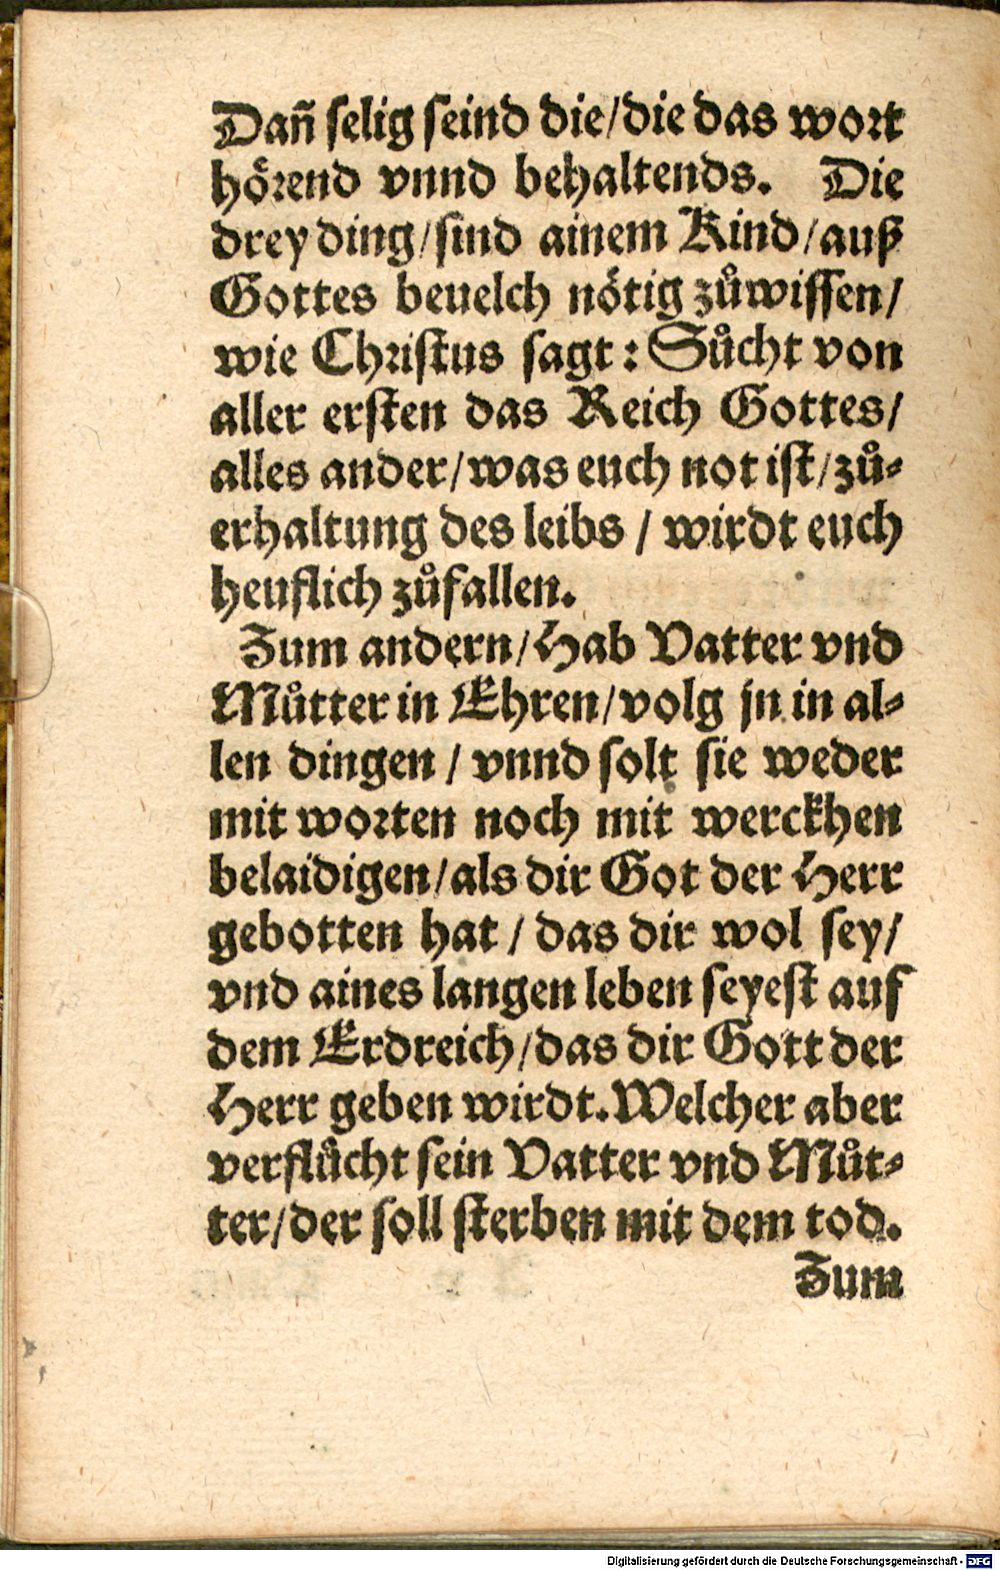 Dañ selig seind die/die das wort
hörend vnnd behaltends. Die
drey ding/sind ainem Kind/auß
Gottes beuelch nötig zůwissen/
wie Christus sagt: Sůcht von
aller ersten das Reich Gottes/
alles ander/was euch not ist/zů-
erhaltung des leibs / wirdt euch
heuflich zůfallen.
Zum andern/Hab Vatter vnd
Můtter in Ehren/volg jn in al-
len dingen / vnnd solt sie weder
mit worten noch mit werckhen
belaidigen/als dir Got der Herr
gebotten hat / das dir wol sey/
vnd aines langen leben seyest auf
dem Erdreich/das dir Gott der
Herr geben wirdt. Welcher aber
verflůcht sein Vatter vnd Můt-
ter/der soll sterben mit dem tod.
Zum
Digitalisierung gefördert durch die Deutsche Forschungsgemeinschaft - DFG